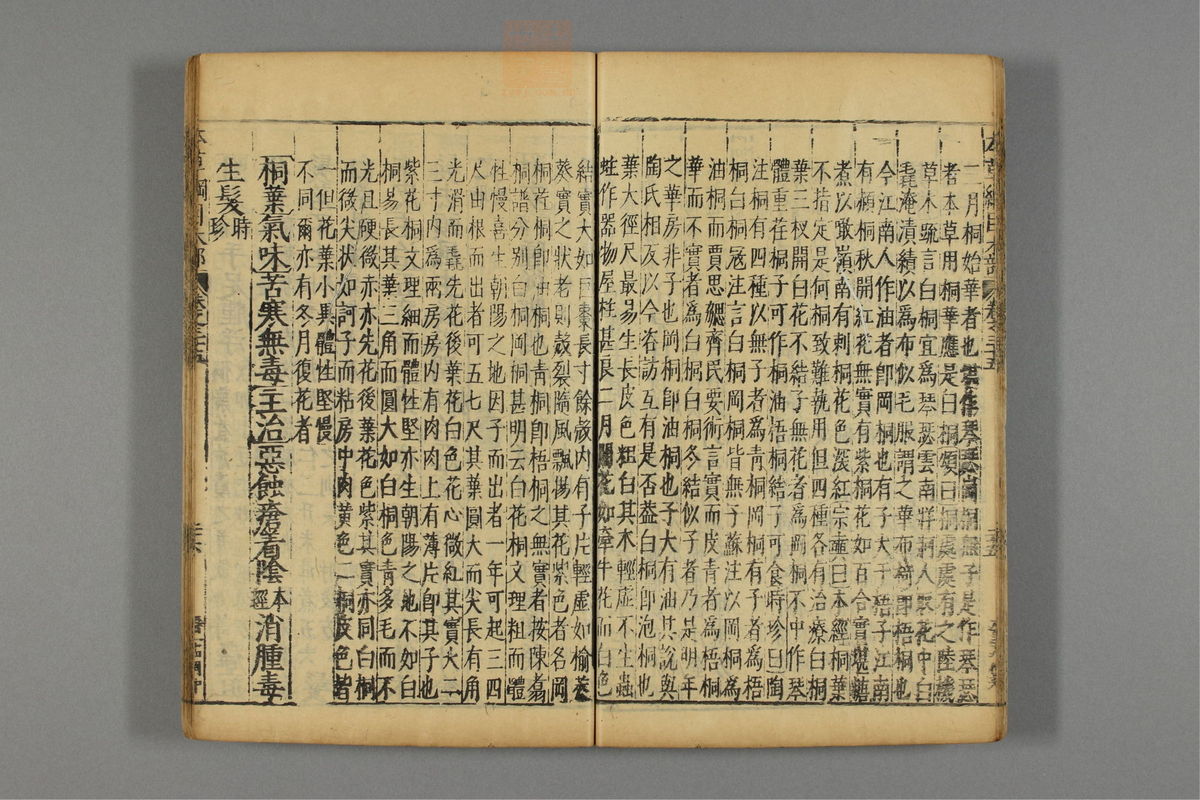 二月桐始華者也堪作琴瑟岡桐無子是作琴瑟
者本草用桐華應是白桐頌曰桐處處有之陸機
草木疏言白桐宜爲琴瑟雲南牂牁人取花中白
毳淹漬績以爲布似毛服謂之華布椅即梧桐也
今江南人作油者卽岡桐也有子大于梧子江南
有頳桐秋開紅花無實有紫桐花如百合實堪糖
煮以啖嶺南有刺桐花色深紅宗奭曰本經桐葉
不指定是何桐致難執用但四種各有治療白桐
葉三杈開白花不結子無花者爲岡桐不中作琴
體重荏桐子可作桐油梧桐結子可食時珍曰陶
注桐有四種以無子者爲青桐岡桐有子者爲梧
桐白桐寇注言白桐岡桐皆無子蘇注以岡桐爲
油桐而賈思勰齊民要術言實而皮青者爲梧桐
華而不實者爲白桐白桐冬結似子者乃是明年
之華房非子也岡桐卽油桐也子大有油其說與
陶氏相反以今咨訪互有是否葢白桐卽泡桐也
葉大徑尺最易生長皮色粗白其木輕虛不生蟲
蛀作器物屋柱甚良二月開花如牽牛花而白色
結實大如巨棗長寸餘殼內有子片輕虛如榆莢
葵實之狀老則殼裂隨風飄揚其花紫色者名岡
桐荏桐卽油桐也青桐卽梧桐之無實者按陳翥
桐譜分別白桐岡桐甚明云白花桐文理粗而體
性慢喜生朝陽之地因子而出者一年可起三四
尺由根而出者可五七尺其葉圓大而尖長有角
光滑而毳先花後葉花白色花心微紅其實大二
三寸內爲兩房房內有肉肉上有薄片卽其子也
紫花桐文理細而體性堅亦生朝陽之地不如白
桐易長其葉三角而圓大如白桐色青多毛而不
光且硬微赤亦先花後葉花色紫其實亦同白桐
而微尖狀如訶子而粘房中肉黃色二桐皮色皆
一但花葉小異體性堅慢
不同爾亦有冬月復花者
桐葉氣味苦寒無毒主治惡蝕瘡着陰本經消腫毒
生髮時珍